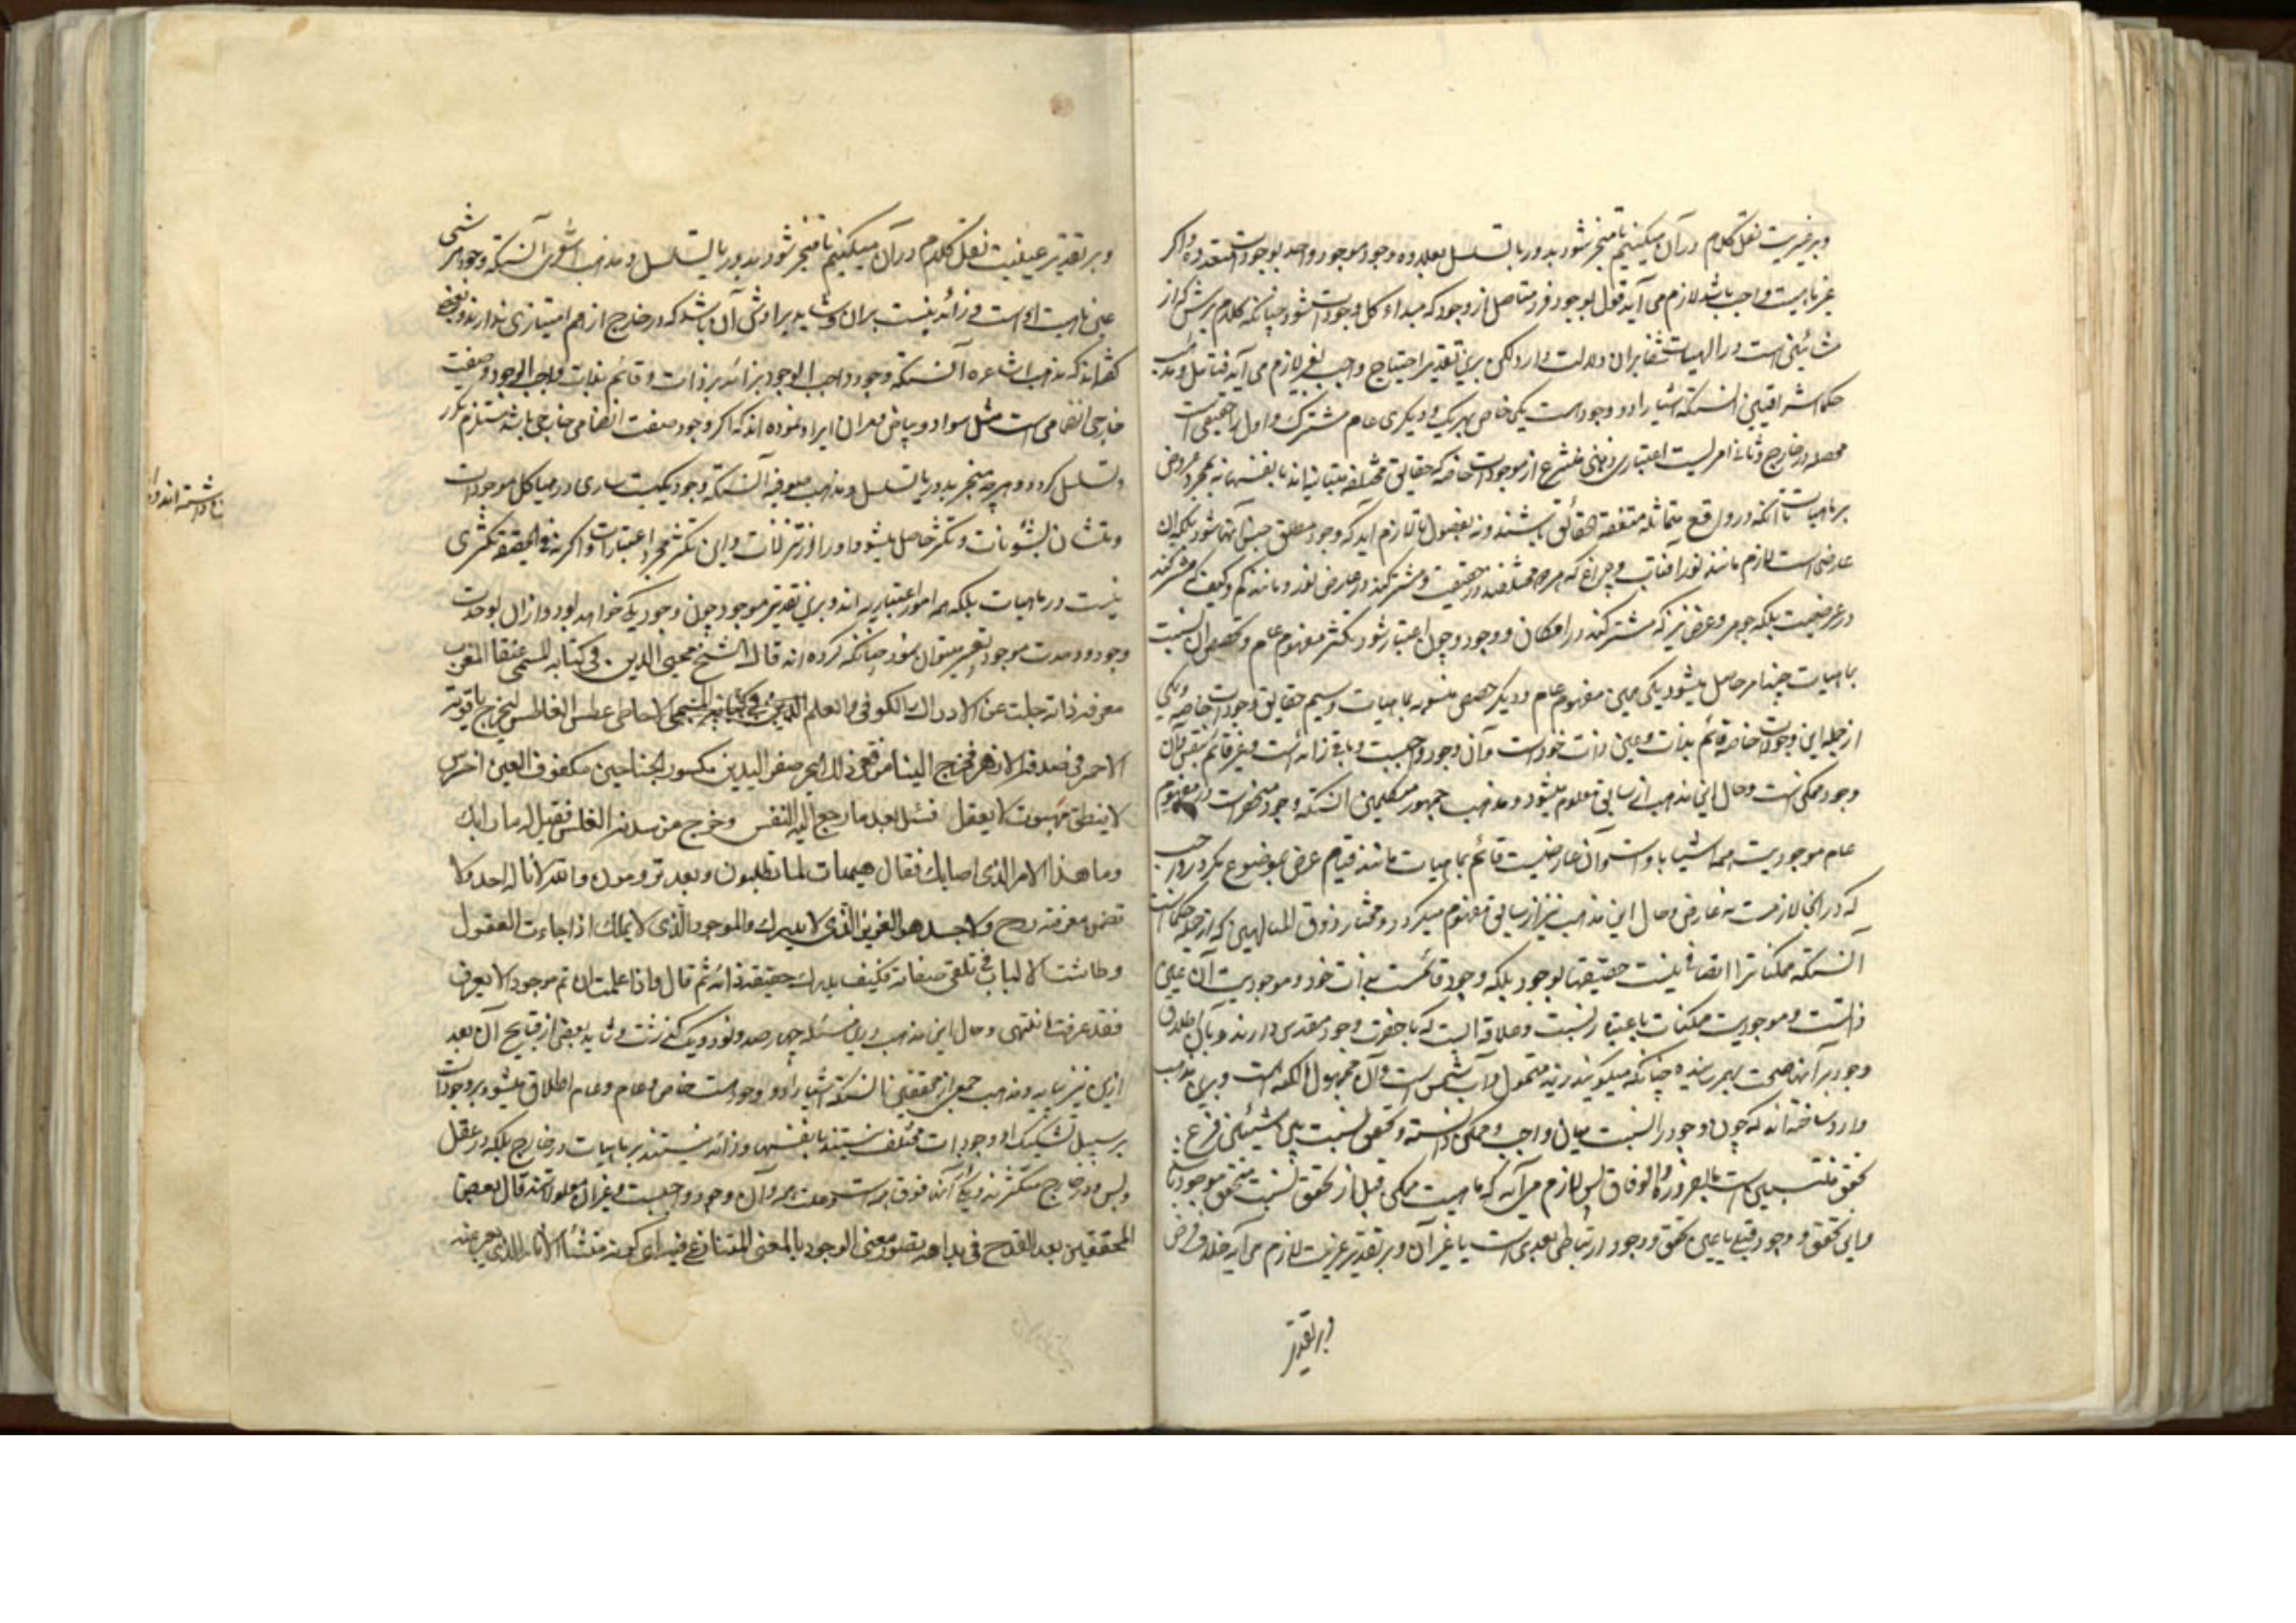 وبر غیریت نقل کلام در آن میکنیم تا منجر شود بدور یا تسلسل بعلاوه وجود موجود واحد بوجودات متعدده و اگر
غیر ماهیت واجب باشد لازم می آید قول بوجود فرد متاصل از وجود که مبداء کل وجودات شود چنانکه کلام
در الهیات شفا بر آن دلالت دارد لکن برین تقدیر احتیاج واجب بغیر لازم می آید فتامل و مذهب
حکما اشراقیین آنستکه اشیا را دو وجود است یکی خاص بهریک و دیگری عام مشترک و اول را حقیقی است
محصله در خارج و ثانی امریست اعتباری ذهنی منتزع از موجودات خاصه که حقایق مختلفه متباینه اند بانفسها نه بمجرد عروض
بر ماهیات تا آنکه در واقع متماثله متفقة الحقائق باشند و نه بفصول تا لازم آید که وجود مطلق جنس آنها شود بلکه آن
عارضی است لازم مانند نور آفتاب و چراغ که مختلفند در حقیقت و مشترکند در عارض نور و مانند کم و کیف که مشترکند
در عرضیت بلکه جوهر و عرض نیز که مشترکند در امکان و وجود و چون اعتبار شود تکثر مفهوم عام و حصص آن نسبت
بماهیات چند امر حاصل میشود یکی همین مفهوم عام و دیگر حصص بماهیات و سیم حقایق وجودات خاصه و یکی
از جمله این وجودات خاصه قائم بذات و عین ذات خود است و آن وجود واجبست و باقی زائد است و غیر قائم بنفس و آن
وجود ممکن است و حال این مذهب از سابق معلوم میشود و مذهب جمهور متکلمین آنستکه وجود منحصر است در مفهوم
عام موجودیت همه اشیا باو است و آن عارضیست قائم بماهیات مانند قیام عرض بموضوع مگر در واجب
که در آنجا لازمست نه عارض و حال این مذهب نیز از سابق مفهوم میگردد و مختار ذوق المتالهین که از جمله حکما است
آنستکه ممکنات را اتصافی نیست حقیقتا بوجود بلکه وجود قائمست بذات خود و موجودیت آن عین
ذاتست و موجودیت ممکنات باعتبار نسبت و علاقه ایست که با حضرت وجود مقدس دارند و بآن اطلاق
وجود بر آنها صحت بهم رسانیده چنانکه میگویند زید متمول و آب مشمس است و آن مجهول الکنه است و برین مذهب
وارد ساخته اند که چون وجود را نسبت میان واجب و ممکن دانسته و تحقق نسبت بین الشیئین فرع
تحقق منتسبین است بالضروره والوفاق پس لازم می آید که ماهیت ممکن قبل از تحقق نسبت متحقق و موجود باشد
و این تحقق و وجود قبلی یا عین تحقق و وجود ارتباطی بعدی است یا غیر آن و بر تقدیر غیریت لازم می آید خلاف فرض
وبر تقدیر
وبر تقدیر عینیت نقل کلام در آن میکنیم تا منجر شود بدور یا تسلسل و مذهب اشعری آنستکه وجود هر شئی
عین ماهیت او است و زائد نیست بر آن و شاید مرادش آن باشد که در خارج از هم امتیازی ندارند و بعضی
گفته اند که مذهب اشاعره آنستکه وجود واجب الوجود زائد بر ذات و قائم بذات واجب الوجود و صفت
خارجی انضمامی است مثل سواد و بیاض و بر آن ایراد نموده اند که اگر وجود صفت انضمامی خارجی باشد مستلزم دور
و تسلسل گردد و هرچه منجر بدور یا تسلسل و مذهب صوفیه آنستکه وجود یکیست ساری در هیاکل موجودات
و متشان بشئونات و تکثر حاصل میشود او را از تنزلات و این تکثر مجرد اعتبارات و اگر نه فی الحقیقه تکثری
نیست در ماهیات بلکه همه امور اعتباریه اند و برین تقدیر موجود چون وجود یکی خواهد بود و از آن بوحدت
وجود و وحدت موجود تعبیر میتوان نمود چنانکه کرده اند قال الشیخ محیی الدین فی کتابه المسمی عنقا المغرب
معرفه ذاته جلت عن الادراك الكونی والعلم الاحاطی غطس الغاطس لیخرج یاقوته
الاحمر فی صدفه الازهر فخرج الینا من قعر ذلك البحر صفر الیدین مكسور الجناحین مكفوف العین اخرس
لا ینطق مبهوت لا یعقل فسئل بعد ما رجع الیه النفس وخرج من سدنه الغلس فقیل له ما رابك
وما هذا الامر الذی اصابك فقال هیهات لما تطلبون وبعد ترومون والله لا ناله احد ولا
تضمن معرفته روح ولا جسد هو العزیز الذی لا یدرك والموجود الذی لا یملك اذا جاءت العقول
وطاشت الالباب فی تلقی صفاته فكیف یدرك حقیقة ذاته ثم قال واذا علمت ان ثم موجودا لا یعرف
فقد عرفت انتهی و حال این مذهب در مسئله چهارصد و نود و یک گذشت و شاید بعضی از قبایح آن بعد
ازین نیز بیاید و مذهب جمعی از محققین آنستکه اشیا را دو وجود است خاص و عام و عام اطلاق میشود بر وجودات
بر سبیل تشکیک و وجودات مختلف هستند بانفسها و زائد نیستند بر ماهیات در خارج بلکه در عقل
و بس و در خارج متکثرند و یکی از آنها فوق همه است و علت همه و آن وجود واجبست و غیر آن معلول است قال بعض
المحققین بعد القدح فی بداهة تصور معنی الوجود بالمعنی المتنازع فیه ای کونه منشأ الآثار الذی یعبر عنه
داشته اند